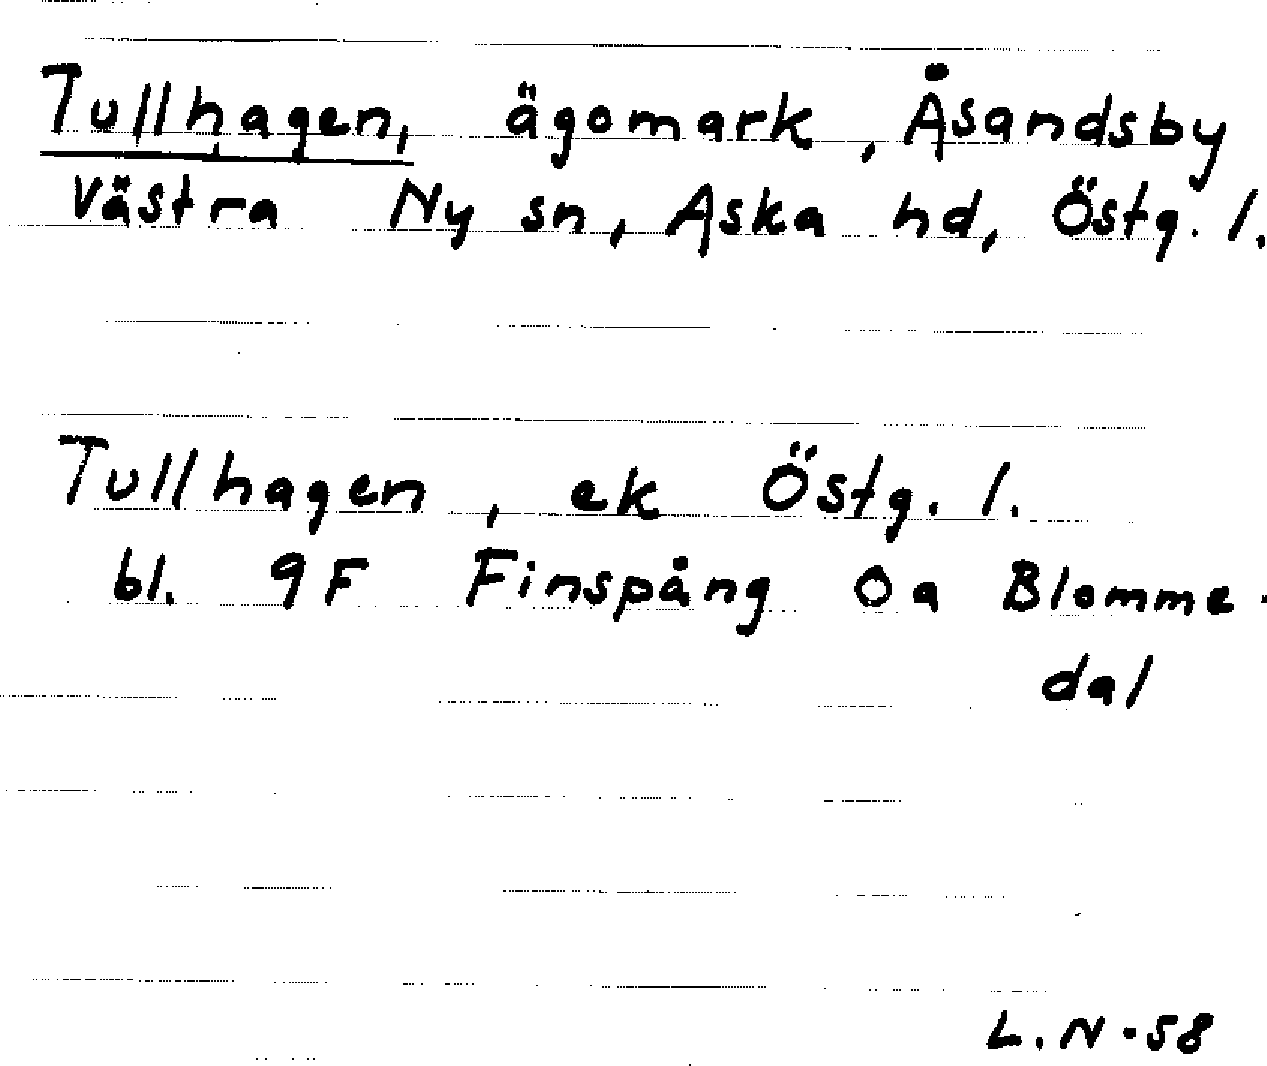 Tullhagen, ägomark, Åsandsby
Västra Ny sn, Aska hd, Östg. l.
Tullhagen, ek Östg. l.
bl. 9F Finspång 0a Blomme-
dal
L. N - 58